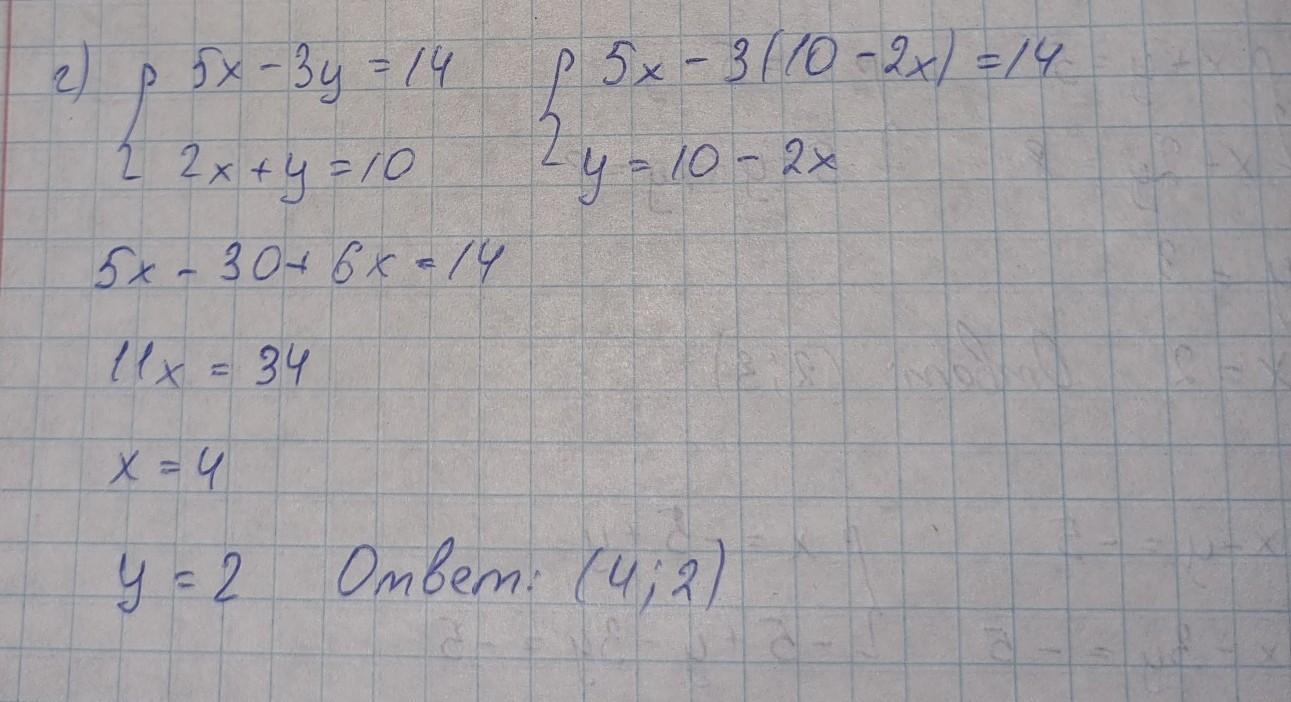 г) { 5x - 3y = 14 { 5x - 3(10 - 2x) = 14
2x + y = 10 y = 10 - 2x
5x - 30 + 6x = 14
11x = 34
x = 4
y = 2 Ответ: (4; 2)